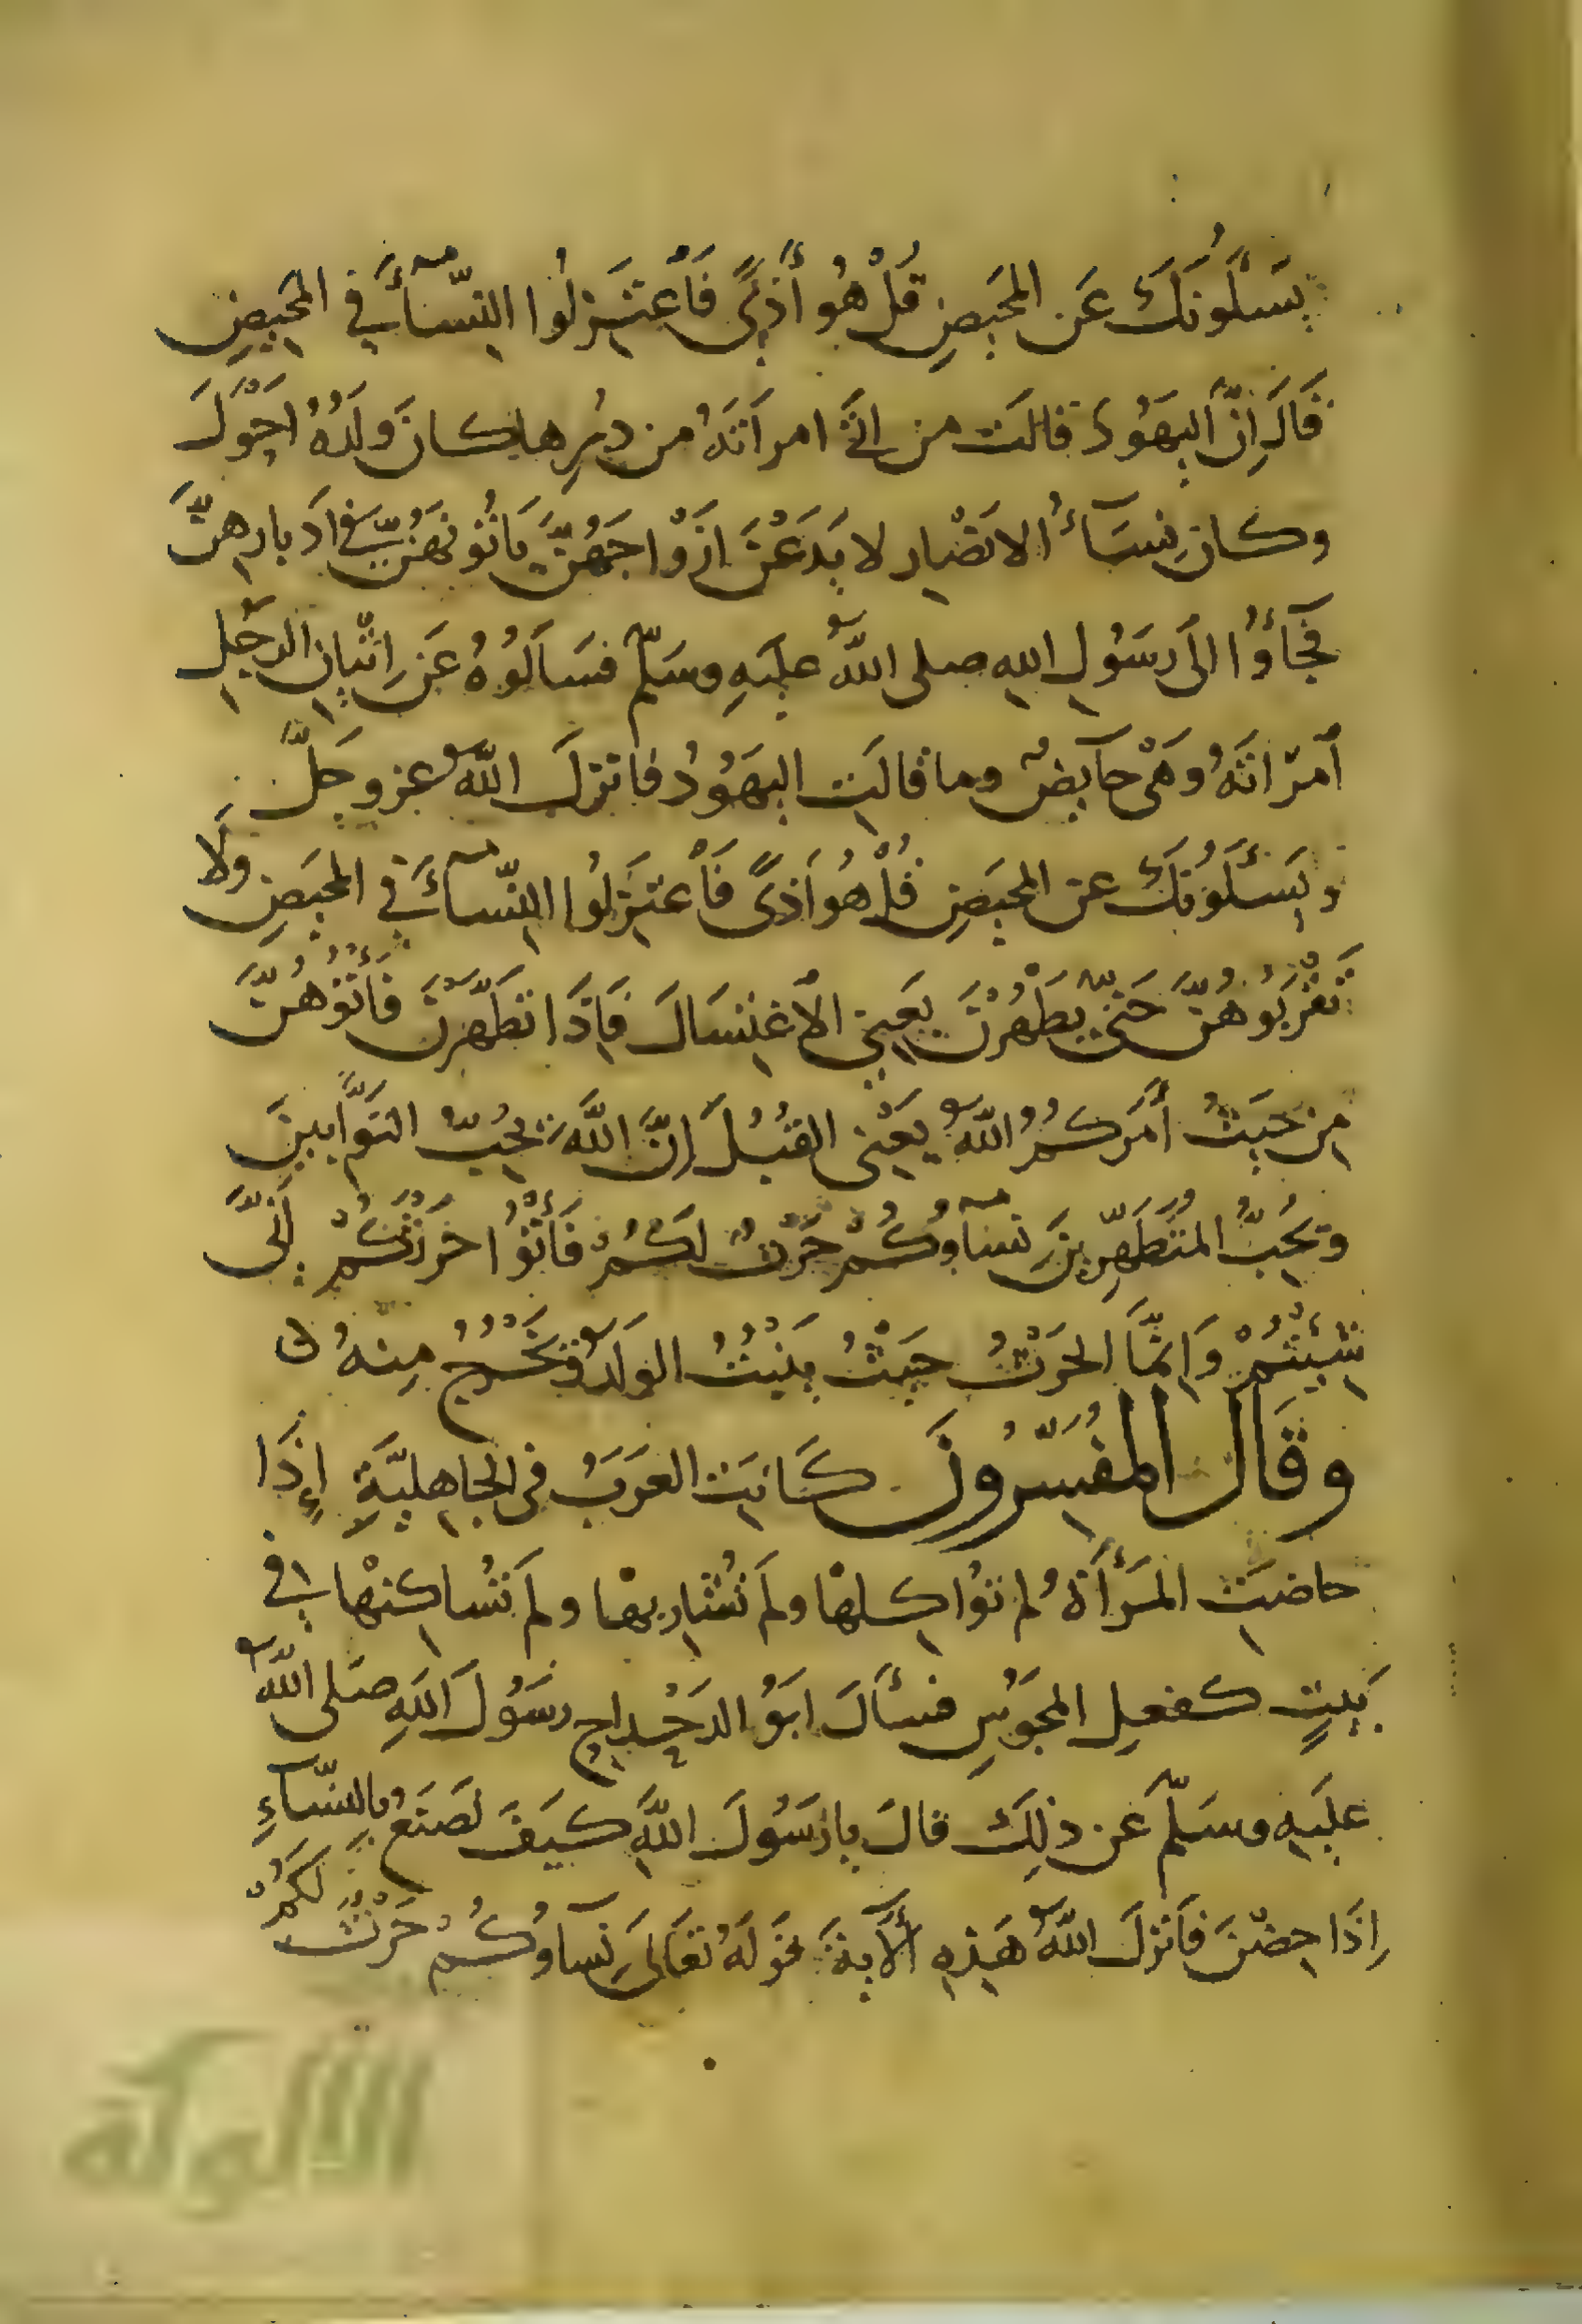 يَسْـَٔلُونَكَ عَنِ المَحِيضِ قُلْ هُوَ أَذًى فَاعْتَزِلُوا النِّسَآءَ فِي المَحِيضِ
قَالَ اِنَّ اليَهُودَ قالَت من اتَى امرَأتَهُ من دبُرِها كانَ ولَدُهُ احْوَلَ
وكان نِسَآءُ الانْصَارِ لا يَدَعْنَ ازْوَاجَهُنَّ يَاتُونهُنَّ في ادَبارِهنَّ
فجَآؤُا الى رسَوُلِ اللهِ صلى اللهُ عليَهِ وسَلّم فسَالُوهُ عَن اِتْيانِ الرجُلِ
امْرَاتَهُ وَهْيَ حآيضٌ وما قالَتِ اليهَوُدُ فانزلَ اللهُ عز وجَلَّ
وَيَسْـَٔلُونَكَ عن المَحِيَضِ قُلْ هُوَ اَذًى فَاعْتَزِلُوا النِّسَآءَ في المحيَضِ وَلَا
تَقْرَبُوهُنَّ حَتّى يَطْهُرْنَ يَعنِي الاغِتسَالَ فَاِذَا تَطَهَّرْنَ فَأْتُوهُنَّ
مِنْ حَيَثُ أَمَرَكُمُ اللهُ يَعْنِى القُبُلَ اِنَّ اللَّهَ يُحِبُّ التَّوَّابِينَ
وَيُحِبُّ المُتَطَهِّرِينَ نسَآوُكُمْ حَرْثٌ لَكُمْ فَأْتُوا حَرْثَكُمْ أَنَّى
شِئْتُمْ وَاِنَّمَا الحَرْثُ حيَثُ يَنْبُتُ الوَلَدُ وَيَخْرُجُ مِنهُ ن
وقَالَ المُفسِّرُونَ كَانَتِ العَرَبُ في الجاهليَّةِ إِذَا
حاضَتِ المَرْأَةُ لم تُوَاكِلهَا ولَم تُشَارِبهَا ولم تُساكِنهَا في
بَيتٍ كفعِلِ المجَوُسِ فسَأَلَ ابَوُ الدَحْدِاحِ رسَوُلَ اللهِ صَلى اللهُ
عليَهِ وسَلّمَ عَن ذلِكَ فقالَ يا رَسُولَ اللَّهِ كيَفَ نَصنَعُ بِالنسّآءِ
اِذَا حِضْنَ فَانزَلَ اللهُ هَذِهِ الآيةَ قَولَهُ تعَالَى نِسَآوُكُمْ حَرْثٌ لَكُمْ
الألوكة